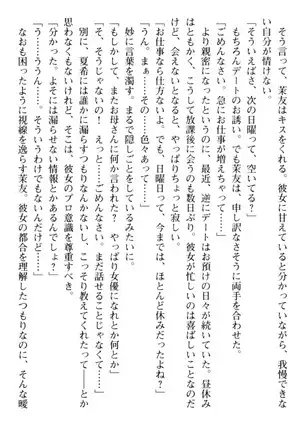 そう言って、茉友はキスをくれる。彼女に甘えていると分かっていながら、我慢できな
い自分が情けない。
「そういえばさ、次の日曜って、空いてる？」
もちろんデートのお誘い。でも茉友は、申し訳なさそうに両手を合わせた。
「ごめんなさい。急にお仕事が増えちゃって……」
より親密になったというのに、最近、逆にデートはお預けの日々が続いていた。昼休み
はともかく、こうして放課後に会うのも数日ぶり。彼女が忙しいのは喜ばしいことなのだ
けど、会えないとなると、やっぱりちょっと寂しい。
「お仕事なら仕方ないよ。でも、日曜日って、今までは、ほとんど休みだったよね？」
「うん。まぁ……その……色々あって……」
妙に言葉を濁す。まるで隠しごとをしているみたいに。
「もしかして、またお母さんに何か言われた？　やっぱり女優になれとか何とか」
「そ、そうじゃないの！　えっと……ごめんなさい。まだ話せることじゃなくて……」
別に、夏希には誰かに漏らすつもりなんかないし、こっそり教えてくれたって――とか
思わなくもないけれど、そこは、彼女のプロ意識を尊重すべき。
「分かった。よそには漏らせない情報とかあるんでしょ？」
「う……ううん……。そういうわけでもないんだけど……」
なおも困ったように視線を逸らす茉友。彼女の都合を理解したつもりなのに、そんな曖